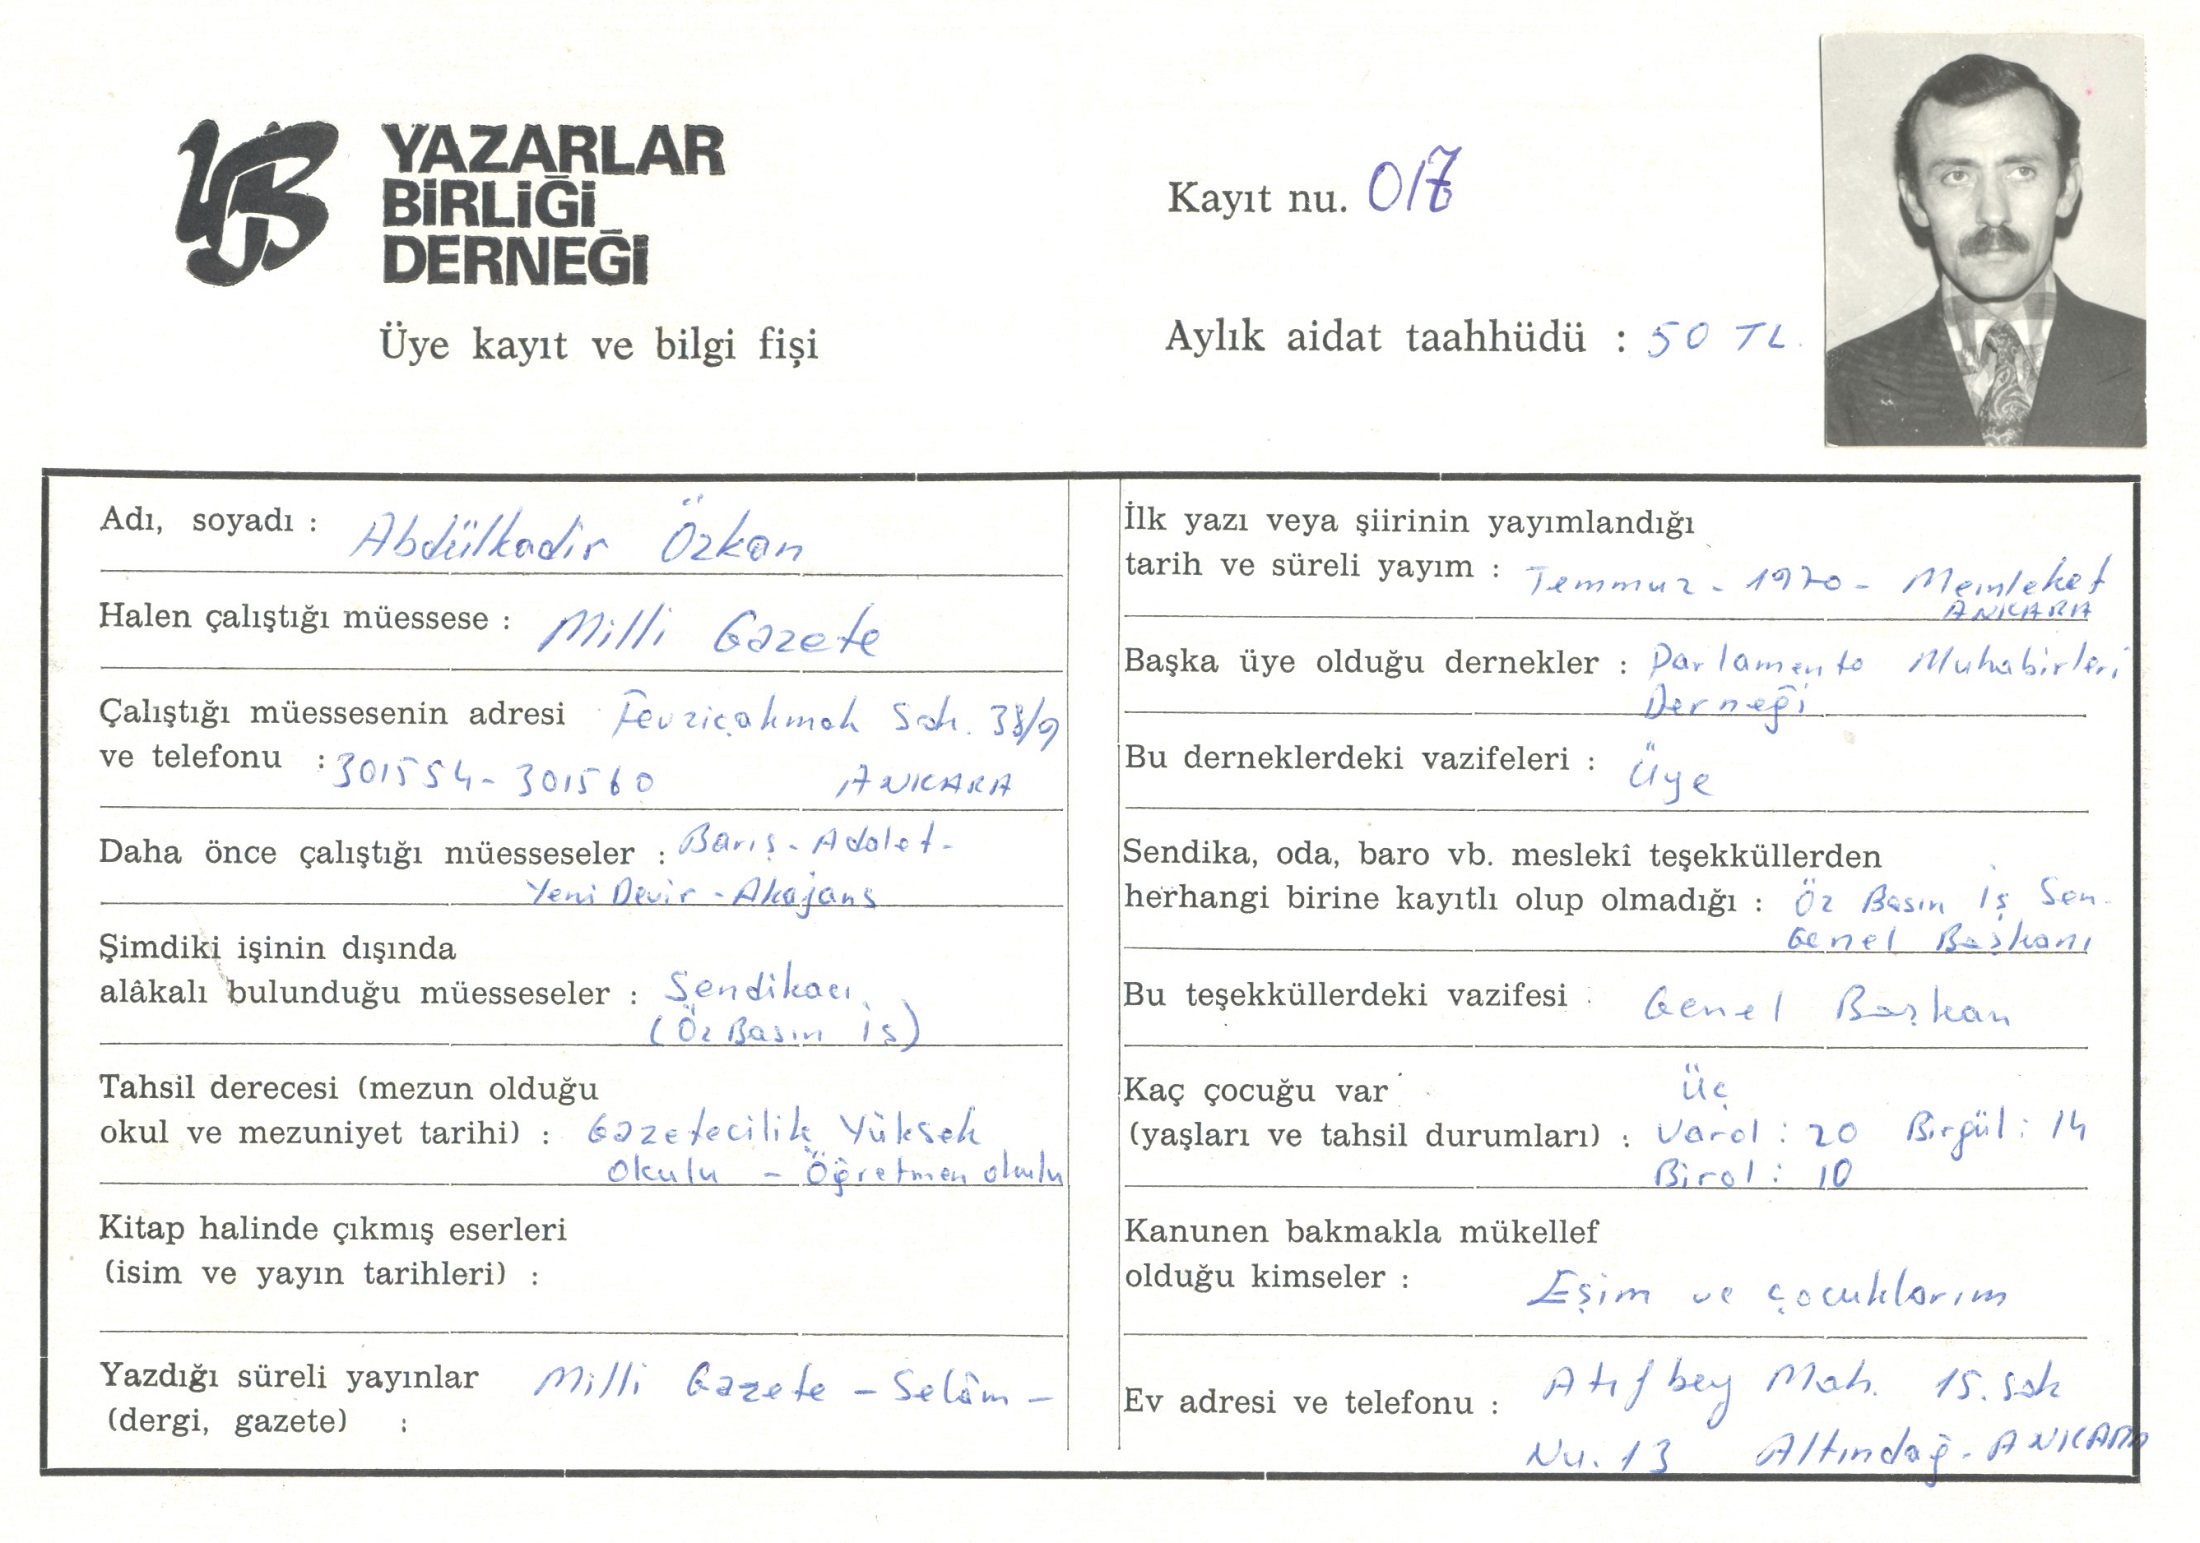 YAZARLAR
BİRLİĞİ
DERNEĞİ
Üye kayıt ve bilgi fişi
Kayıt nu. 017
Aylık aidat taahhüdü : 50 TL.
Adı, soyadı : Abdülkadir Özkan
Halen çalıştığı müessese : Milli Gazete
Çalıştığı müessesenin adresi Fevziçakmak Sok. 38/9
ve telefonu : 301554-301560 ANKARA
Daha önce çalıştığı müesseseler : Barış - Adalet -
Yeni Devir - Akajans
Şimdiki işinin dışında
alâkalı bulunduğu müesseseler : Sendikacı
(Öz Basın İş)
Tahsil derecesi (mezun olduğu
okul ve mezuniyet tarihi) : Gazetecilik Yüksek
Okulu - Öğretmen okulu
Kitap halinde çıkmış eserleri
(isim ve yayın tarihleri) :
Yazdığı süreli yayınlar Milli Gazete - Selâm -
(dergi, gazete) :
İlk yazı veya şiirinin yayımlandığı
tarih ve süreli yayım : Temmuz - 1970 - Memleket
ANKARA
Başka üye olduğu dernekler : Parlamento Muhabirleri
Derneği
Bu derneklerdeki vazifeleri : Üye
Sendika, oda, baro vb. meslekî teşekküllerden
herhangi birine kayıtlı olup olmadığı : Öz Basın İş Sen.
Genel Başkanı
Bu teşekküllerdeki vazifesi : Genel Başkan
Kaç çocuğu var Üç
(yaşları ve tahsil durumları) : Varol : 20 Birgül : 14
Birol : 10
Kanunen bakmakla mükellef
olduğu kimseler : Eşim ve çocuklarım
Ev adresi ve telefonu : Atıfbey Mah. 15. Sok
Nu. 13 Altındağ - ANKARA